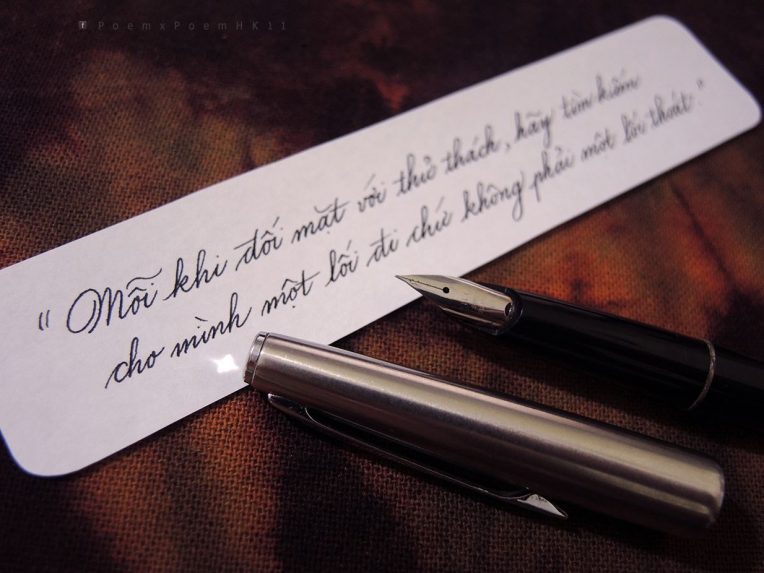 PoemxPoemHK11
"Mỗi khi đối mặt với thử thách, hãy tìm kiếm
cho mình một lối đi chứ không phải một lối thoát."